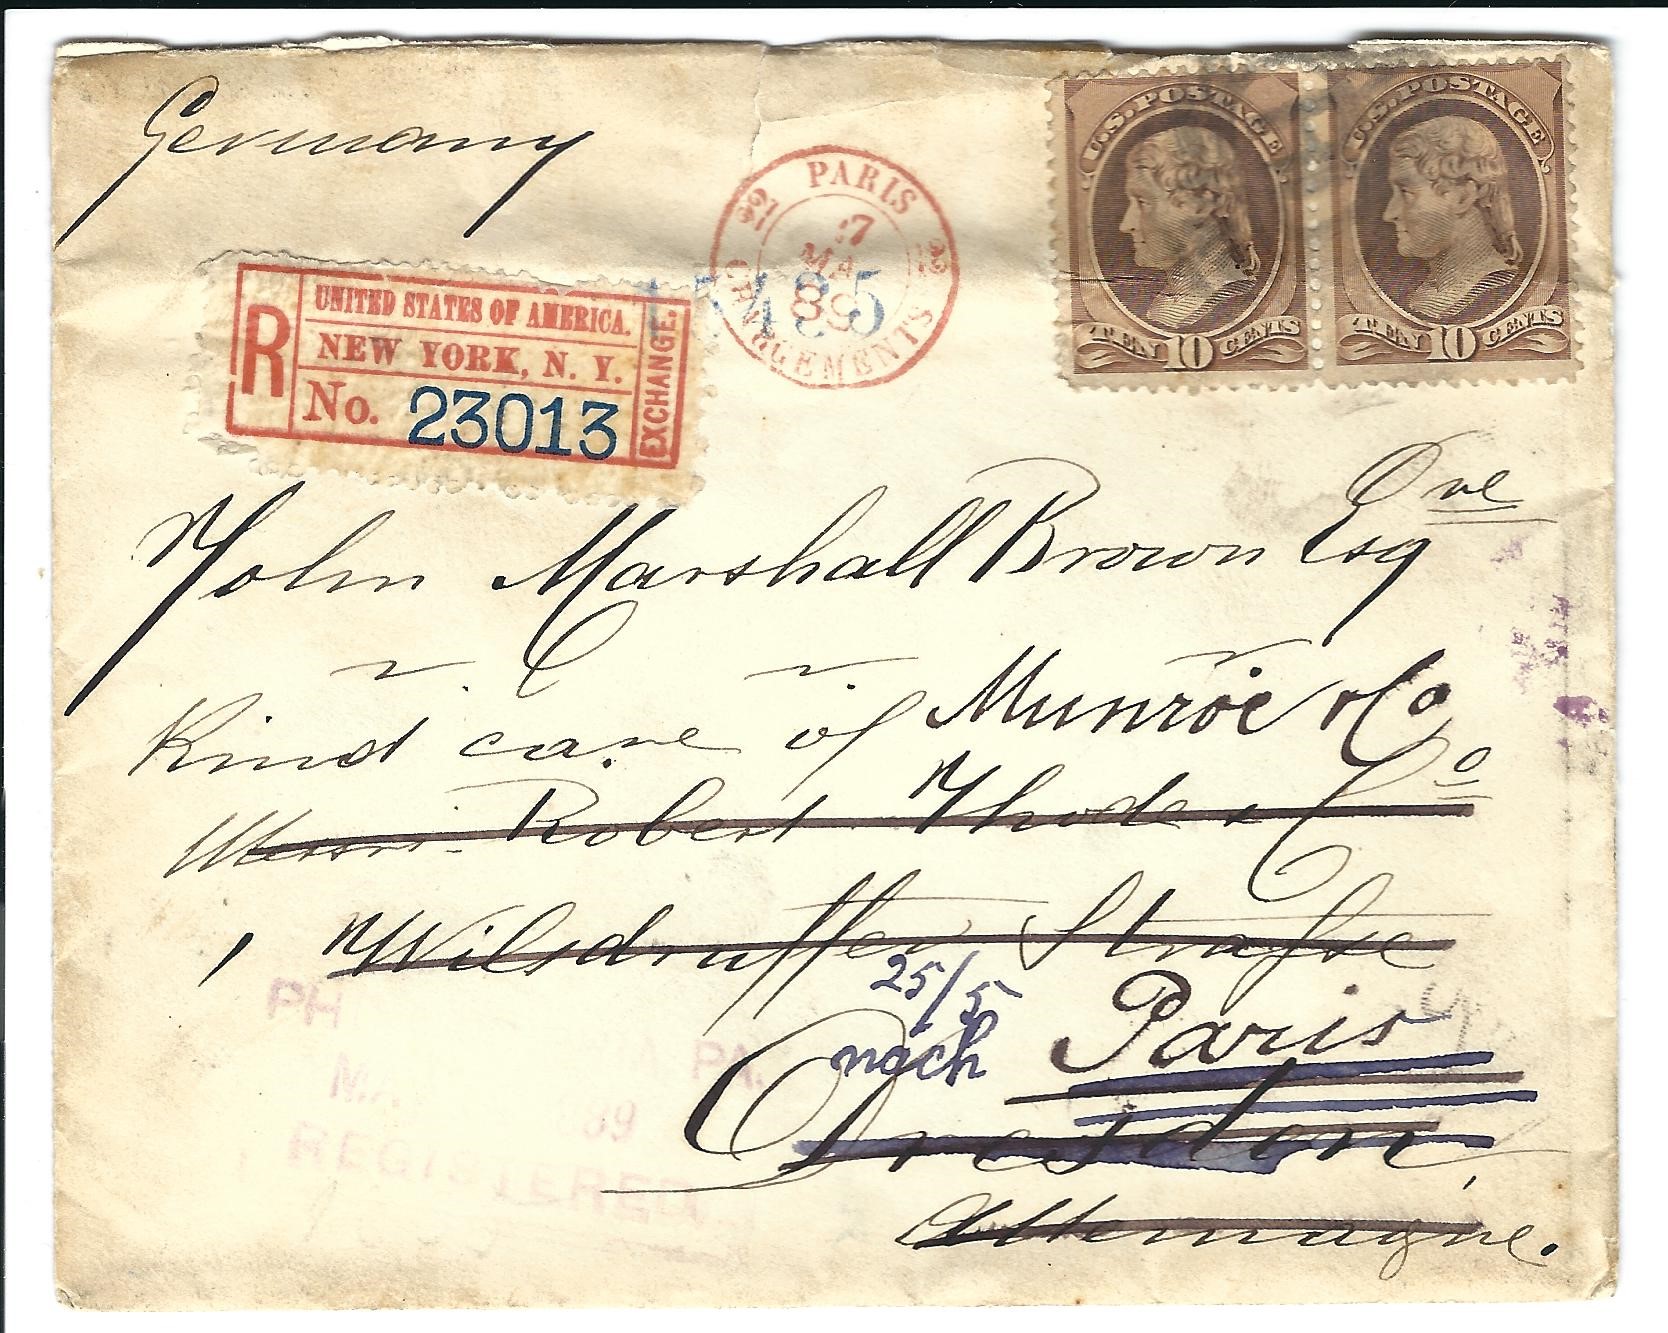 Germany
U.S. POSTAGE
TEN 10 CENTS
U.S. POSTAGE
TEN 10 CENTS
PARIS
7
MA
89
CHARGEMENTS
R
UNITED STATES OF AMERICA.
NEW YORK, N. Y.
No. 23013
EXCHANGE.
485
John Marshall Brown Esq
Kind care of Munroe & Co
Messrs. Robert Thode & Co
Wilsdruffer Strasse
25/5
nach Paris
Dresden,
Allemagne.
PH PA.
MA 89
REGISTERED